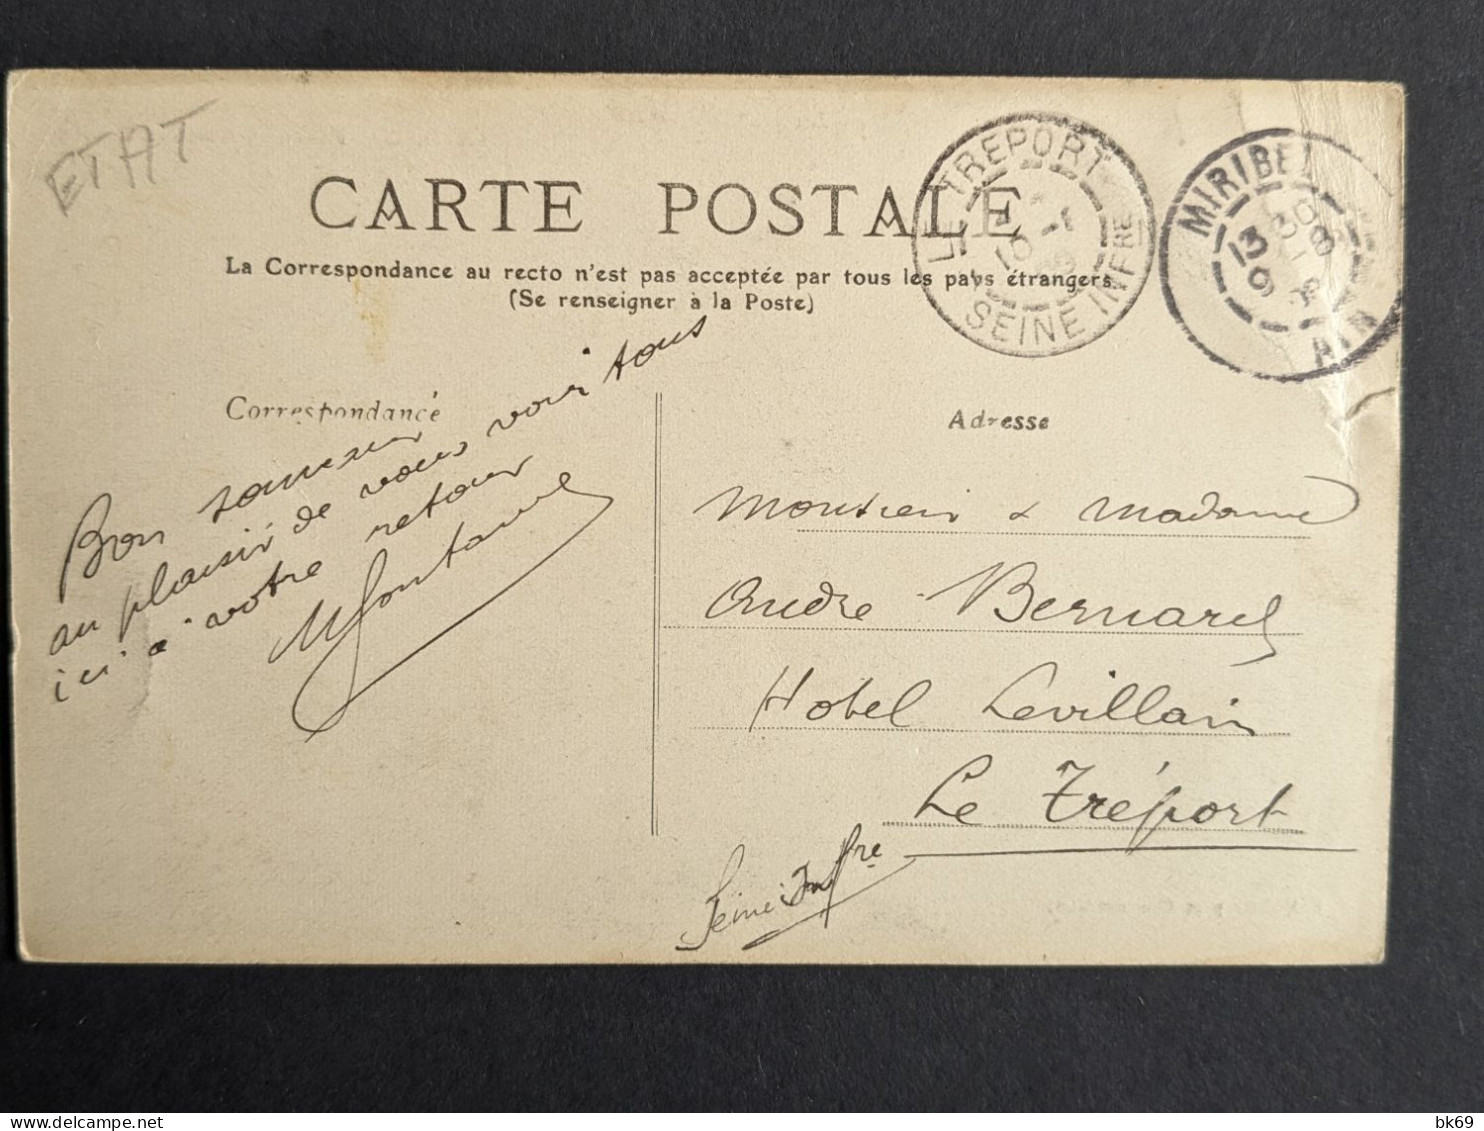 ETAT
CARTE POSTALE
La Correspondance au recto n'est pas acceptée par tous les pays étrangers.
(Se renseigner à la Poste)
LE TREPORT
SEINE INFRE
MIRIBEL
AIN
Correspondance
Bon
au plaisir de vous voir tous
ici a votre retour
Adresse
Monsieur & Madame
André Bernard
Hotel Levillain
Le Tréport
Seine Infre
bk69